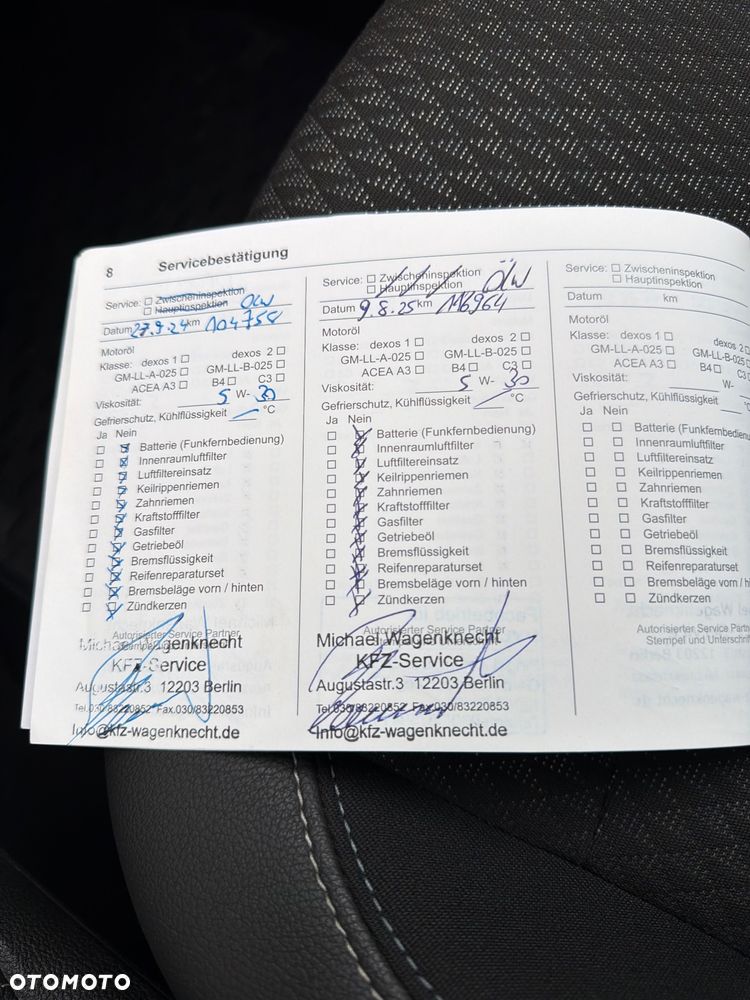 8 Servicebestätigung
Service: □ Zwischeninspektion
□ Hauptinspektion ÖLW
Datum 27.9.24 km 104758
Motoröl
Klasse: dexos 1 □ dexos 2 □
GM-LL-A-025 □ GM-LL-B-025 □
ACEA A3 □ B4 □ C3 □
Viskosität: 5 W- 30
Gefrierschutz, Kühlflüssigkeit °C
Ja Nein
Batterie (Funkfernbedienung)
Innenraumluftfilter
Luftfiltereinsatz
Keilrippenriemen
Zahnriemen
Kraftstofffilter
Gasfilter
Getriebeöl
Bremsflüssigkeit
Reifenreparaturset
Bremsbeläge vorn / hinten
Zündkerzen
Autorisierter Service Partner
Michael Wagenknecht
KFZ-Service
Augustastr.3 12203 Berlin
Tel.030/83220852 Fax.030/83220853
Info@kfz-wagenknecht.de
Service: □ Zwischeninspektion
□ Hauptinspektion ÖLW
Datum 9.8.25 km 116964
Motoröl
Klasse: dexos 1 □ dexos 2 □
GM-LL-A-025 □ GM-LL-B-025 □
ACEA A3 □ B4 □ C3 □
Viskosität: 5 W- 30
Gefrierschutz, Kühlflüssigkeit °C
Ja Nein
Batterie (Funkfernbedienung)
Innenraumluftfilter
Luftfiltereinsatz
Keilrippenriemen
Zahnriemen
Kraftstofffilter
Gasfilter
Getriebeöl
Bremsflüssigkeit
Reifenreparaturset
Bremsbeläge vorn / hinten
Zündkerzen
Autorisierter Service Partner
Michael Wagenknecht
KFZ-Service
Augustastr.3 12203 Berlin
Tel.030/83220852 Fax.030/83220853
Info@kfz-wagenknecht.de
Service: □ Zwischeninspektion
□ Hauptinspektion
Datum km
Motoröl
Klasse: dexos 1 □ dexos 2 □
GM-LL-A-025 □ GM-LL-B-025
ACEA A3 □ B4 □ C3
Viskosität: W-
Gefrierschutz, Kühlflüssigkeit °C
Ja Nein
□ □ Batterie (Funkfernbedienu
□ □ Innenraumluftfilter
□ □ Luftfiltereinsatz
□ □ Keilrippenriemen
□ □ Zahnriemen
□ □ Kraftstofffilter
□ □ Gasfilter
□ □ Getriebeöl
□ □ Bremsflüssigkeit
□ □ Reifenreparaturset
□ □ Bremsbeläge vorn / hi
□ □ Zündkerzen
Autorisierter Service Partn
Stempel und Unterschrif
OTOMOTO